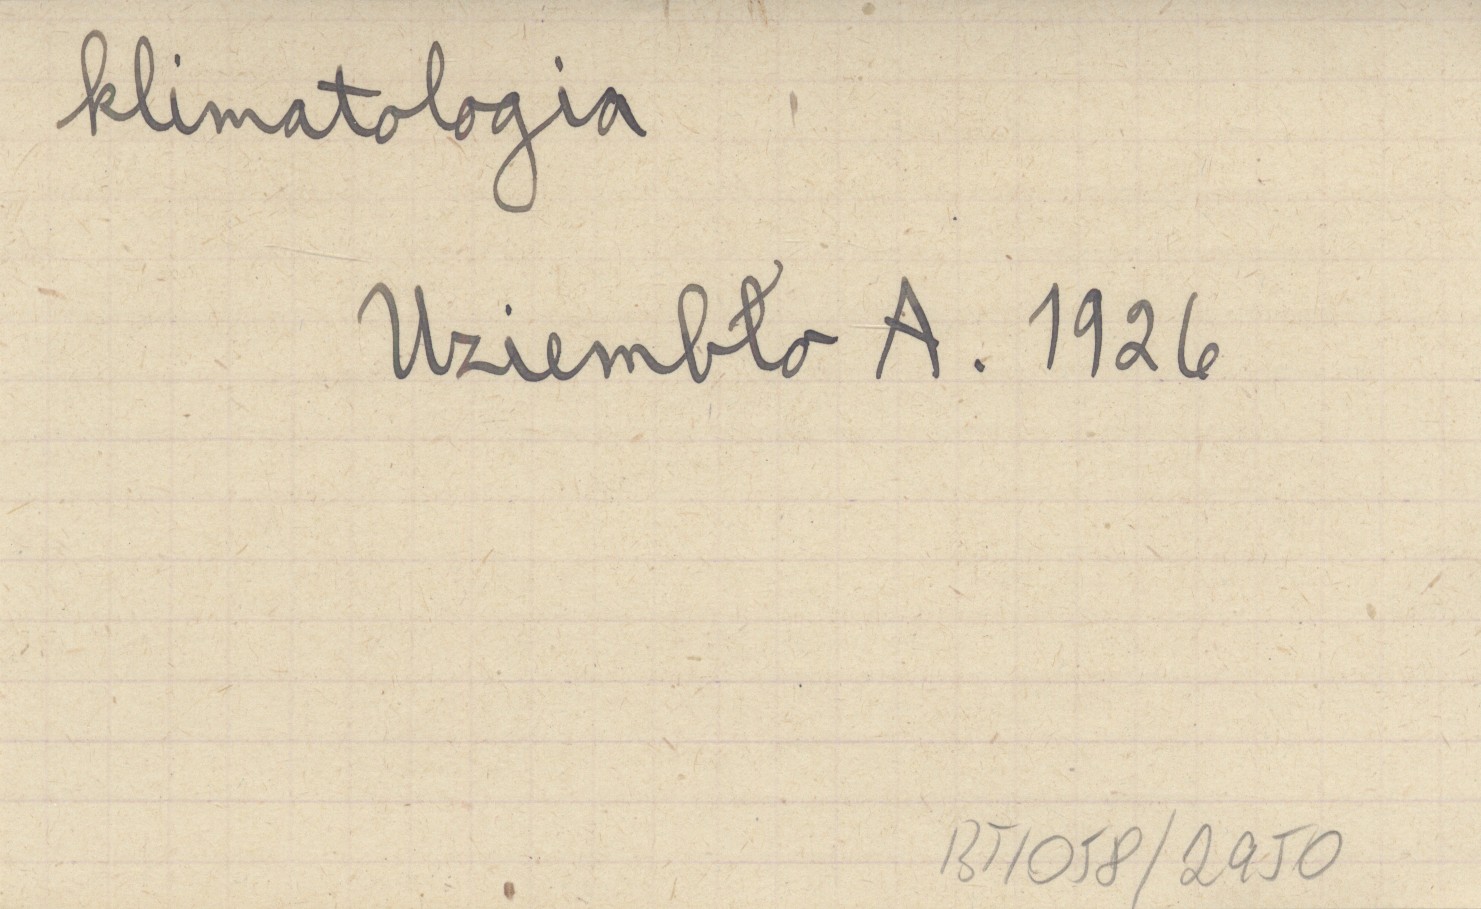 klimatologia
Uziembło A. 1926
BT1058/2950